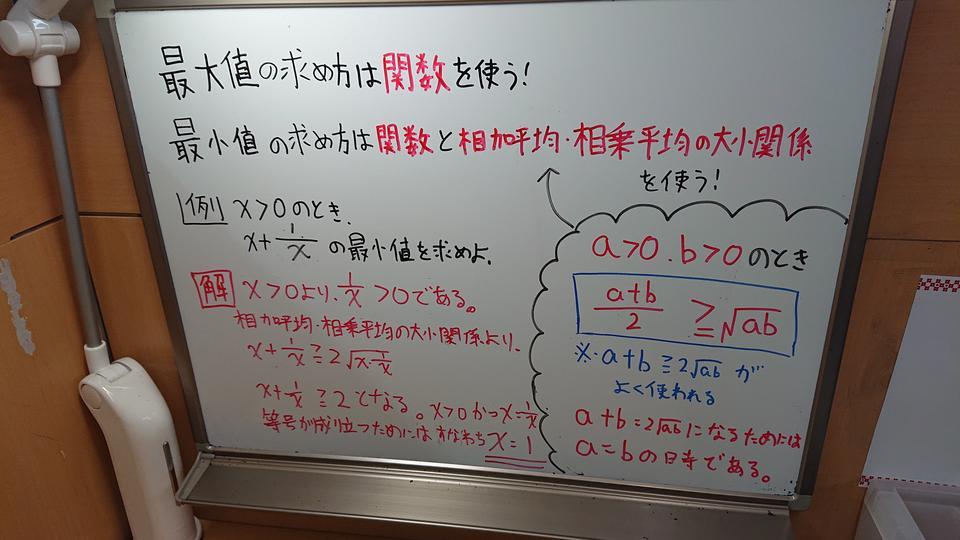 最大値の求め方は関数を使う!
最小値の求め方は関数と相加平均・相乗平均の大小関係
を使う!
例 x>0のとき、
x+1/x の最小値を求めよ。
解 x>0より、1/x>0である。
相加平均・相乗平均の大小関係より、
x+1/x≧2√x・1/x
x+1/x≧2となる。
等号が成り立つためには x>0かつx=1/x
すなわち x=1
a>0.b>0のとき
a+b/2 ≧√ab
※・a+b≧2√abが
よく使われる
a+b=2√abになるためには
a=bの時である。